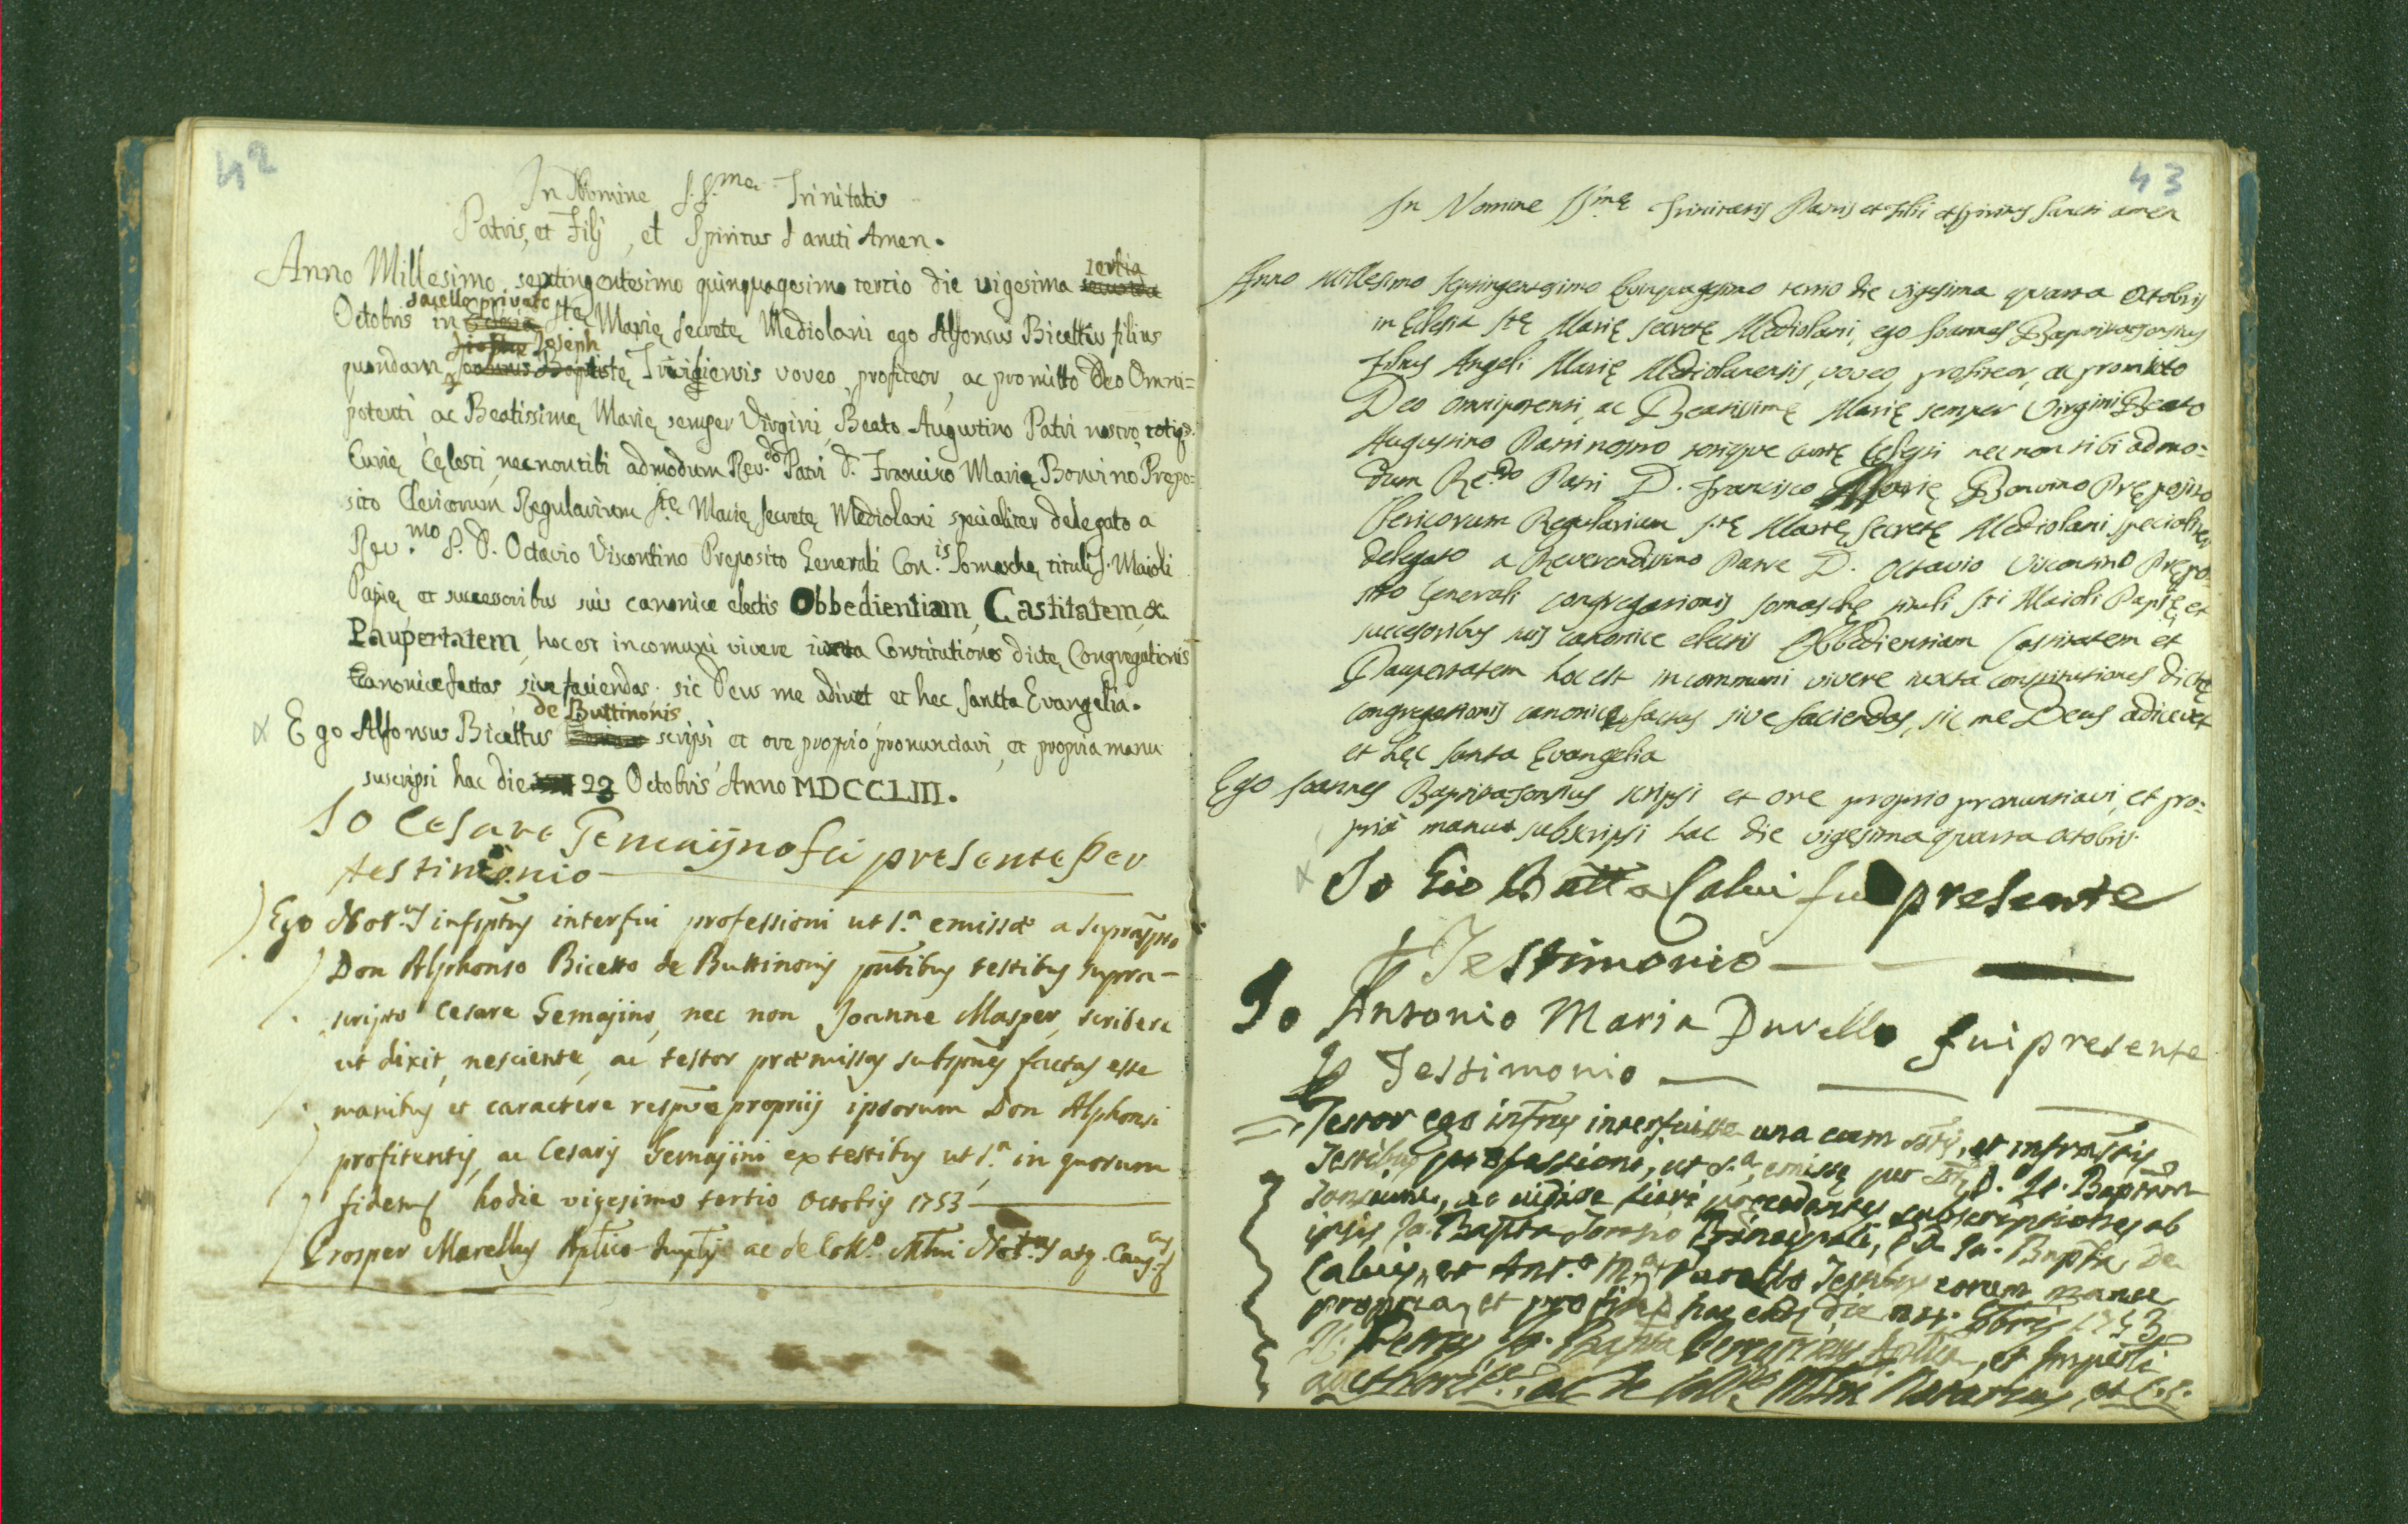 42
In Nomine S.S.ma Trinitatis
Patris, et Filij, et Spiritus Sancti Amen.
Anno Millesimo septingentesimo quinquagesimo tercio die vigesima tertia
Octobris in sacello privato Stę Marię Secretę Mediolani ego Alfonsus Bicettus filius
quondam Joseph Trivigiensis voveo, profiteor, ac promitto Deo Omni=
potenti ac Beatissimę Marię semper Virgini, Beato Augustino Patri nostro, totiq.
Curię Cęlesti, necnon tibi admodum Rev.do Patri D. Francisco Marię Bonvino Prepo-
sito Clericorum Regularium Stę Marię Secretę Mediolani specialiter delegato a
Rev.mo P. D. Octavio Viscontino Preposito Generali Con.is Somaschę tituli S. Maioli
Papię et successoribus suis canonice electis Obbedientiam, Castitatem, &
Paupertatem, hoc est in comuni vivere iuxta Constitutiones dictę Congregationis
Canonice factas, sive faciendas. sic Deus me adiuvet et hec Sancta Evangelia.
Ego Alfonsus Bicettus de Buttinonis scripsi et ore proprio pronunciavi, et propria manu
suscripsi hac die 23 Octobris Anno MDCCLIII.
Io Cesare Gemaijno fui presente per
testimonio
Ego Not.us infsptus interfui professioni ut s.a emissæ a suprascpto
Don Alphonso Bicetto de Buttinonis pntibus testibus supra-
scripto Cesare Gemajino, nec non Joanne Masper, scribere
ut dixit, nesciente, ac testor præmissas subspnes factas esse
manibus et caractere respve proprijs ipsorum Don Alphonsi
profitentis, ac Cesaris Gemajini ex testibus ut s.a in quorum
fidem hodie vigesimo tertio Octobris 1753
Prosper Marellus Aplica ac de Coll.o Mlni Not.us
43
In Nomine SSmę Trinitatis Patris et Filii et Spiritus Sancti amen
Anno Millesimo Septingentesimo Quinquagesimo tertio die vigesima quarta Octobris
in Eclesia Stę Marię Secretę Mediolani, ego Joannes Baptista Sonsius
filius Angeli Marię Mediolanensis, voveo, profiteor, ac promitto
Deo omnipotenti, ac Beatissimę Marię semper Virgini Beato
Augustino Patri nostro totique curię Celesti nec non tibi admo=
dum Re.do Patri D. Francisco Marię Bonvino Pręposito
Clericorum Regularium Stę Marię Secretę Mediolani specialiter
delegato a Reverendissimo Patre D. Octavio Viscontino Prępo
sito Generali congregationis somaschę tituli Sti Maioli Papię, et
succesoribus suis canonice electis Obbedientiam Castitatem et
Paupertatem hoc est in communi vivere iuxta constitutiones dictę
congregationis canonice factas sive faciendas, sic me Deus adiuvet
et hęc santa Evangelia
Ego Joannes Baptista Sonsius scripsi et ore proprio pronuntiavi, et pro=
pria manu subscripsi hac die vigesima quarta octobris
Io Gio Batta Calvi fui presente
p Testimonio
Io Antonio Maria Duvello fui presente
p Testimonio
Testor ego infrus interfuisse una cum sttis, et infrattis
Testibus professioni, ut s.a, emissę per D. Jo. Baptam
Sonsium, ac vidisse fieri precedentes subscriptiones ab
ipsis Jo. Bapta Sonsio Principali, Jo. Bapta de
Calvis, et Ant.o M.a Duvello Testibus eorum manu
propria, et pro fide hac die 1753
Jo. Bapta et Imperiali
aucthorite, ac de Coll.o Mlni Notarius, et C.C.